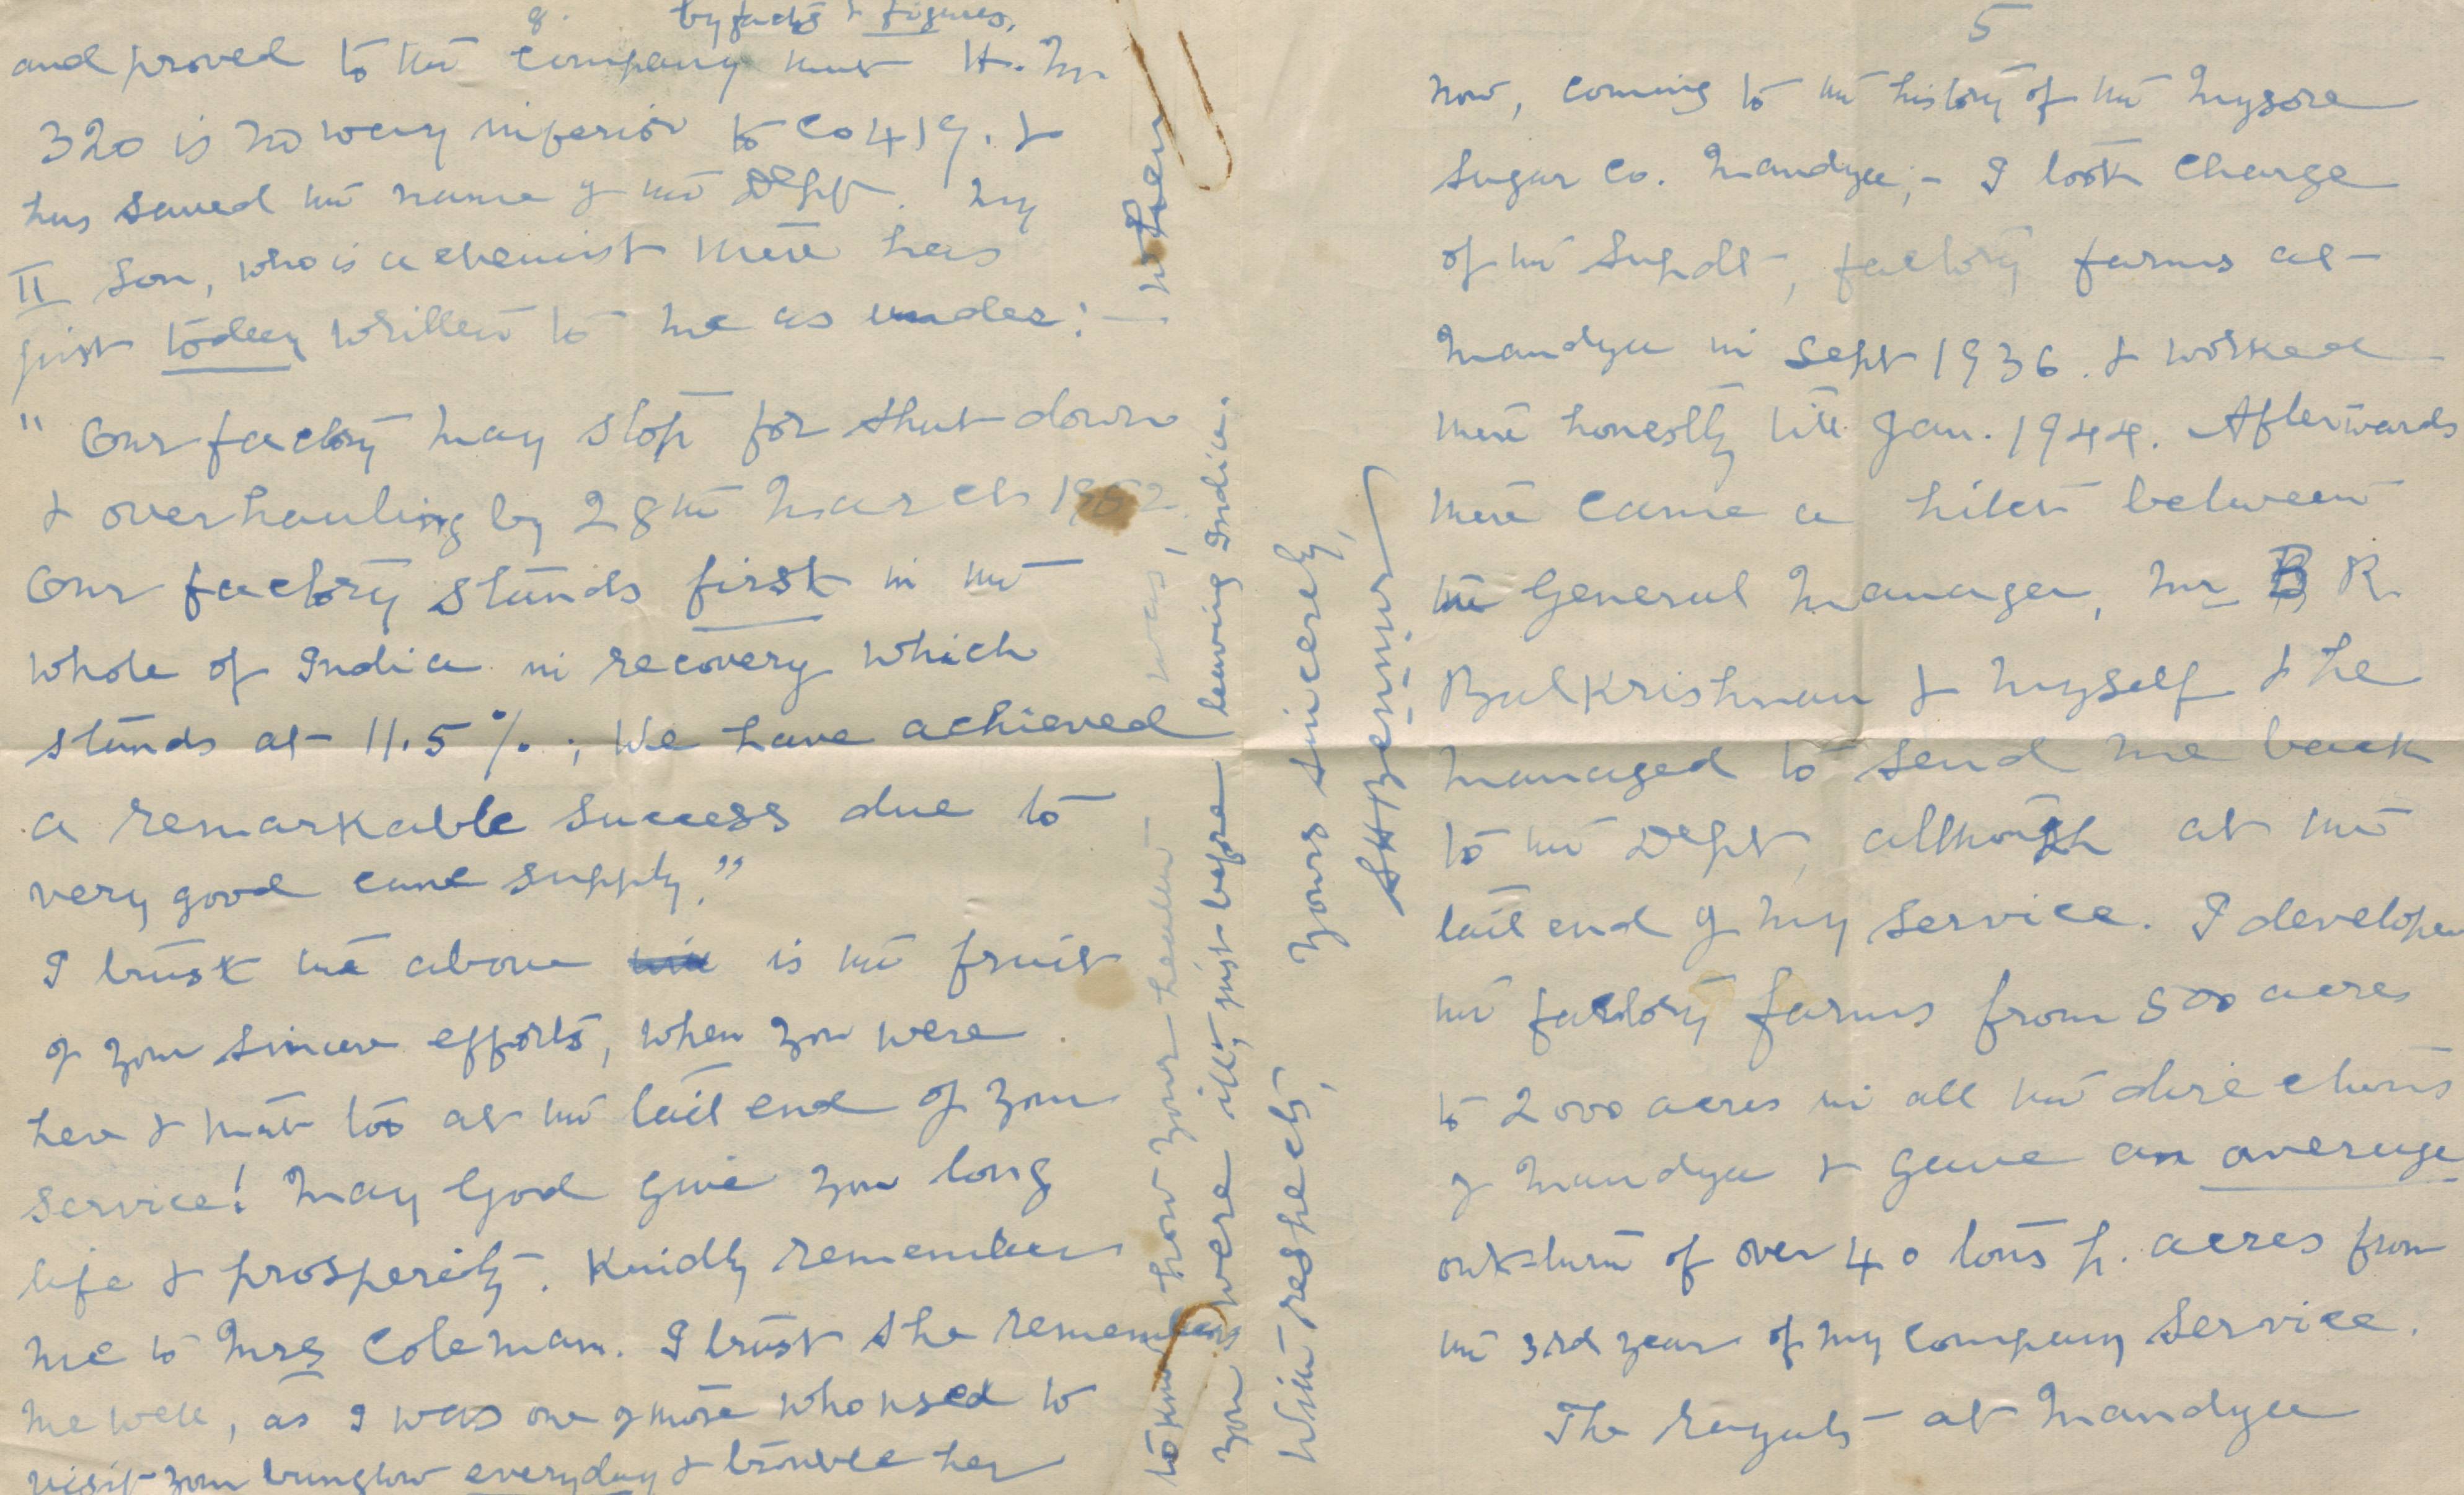 8.
by facts & figures,
and proved to the company that H. M.
320 is no way inferior to Co 419. &
has saved the name of the Dept. My
II Son, who is a chemist there has
just today written to me as under: —
" Our factory may stop for shut down
& overhauling by 28th March 1952.
Our factory stands first in the
whole of India in recovery which
stands at 11.5 %.; We have achieved
a remarkable success due to
very good cane supply."
I trust the above is the fruit
of your sincere efforts, when you were
here & that too at the tail end of your
service! May God give you long
life & prosperity. Kindly remember
me to Mrs Coleman. I trust she remembers
me well, as I was one of those who used to
visit your bunglow everyday & trouble her
to know how your health was, when
you were ill, just before leaving India.
With respects,
Yours sincerely,
5
Now, coming to the history of the Mysore
Sugar Co. Mandya, - I took charge
of the Supdt, factory farms at
Mandya in Sept 1936. & worked
there honestly till Jan. 1944. Afterwards
there came a hitch between
the General Manager, Mr B R.
Balkrishnan & myself & he
managed to send me back
to the Dept, although at the
tail end of my service. I developed
the factory farms from 500 acres
to 2000 acres in all the directions
of Mandya & gave an average
out-turn of over 40 tons p. acres from
the 3rd year of my company service.
The rayats at Mandya